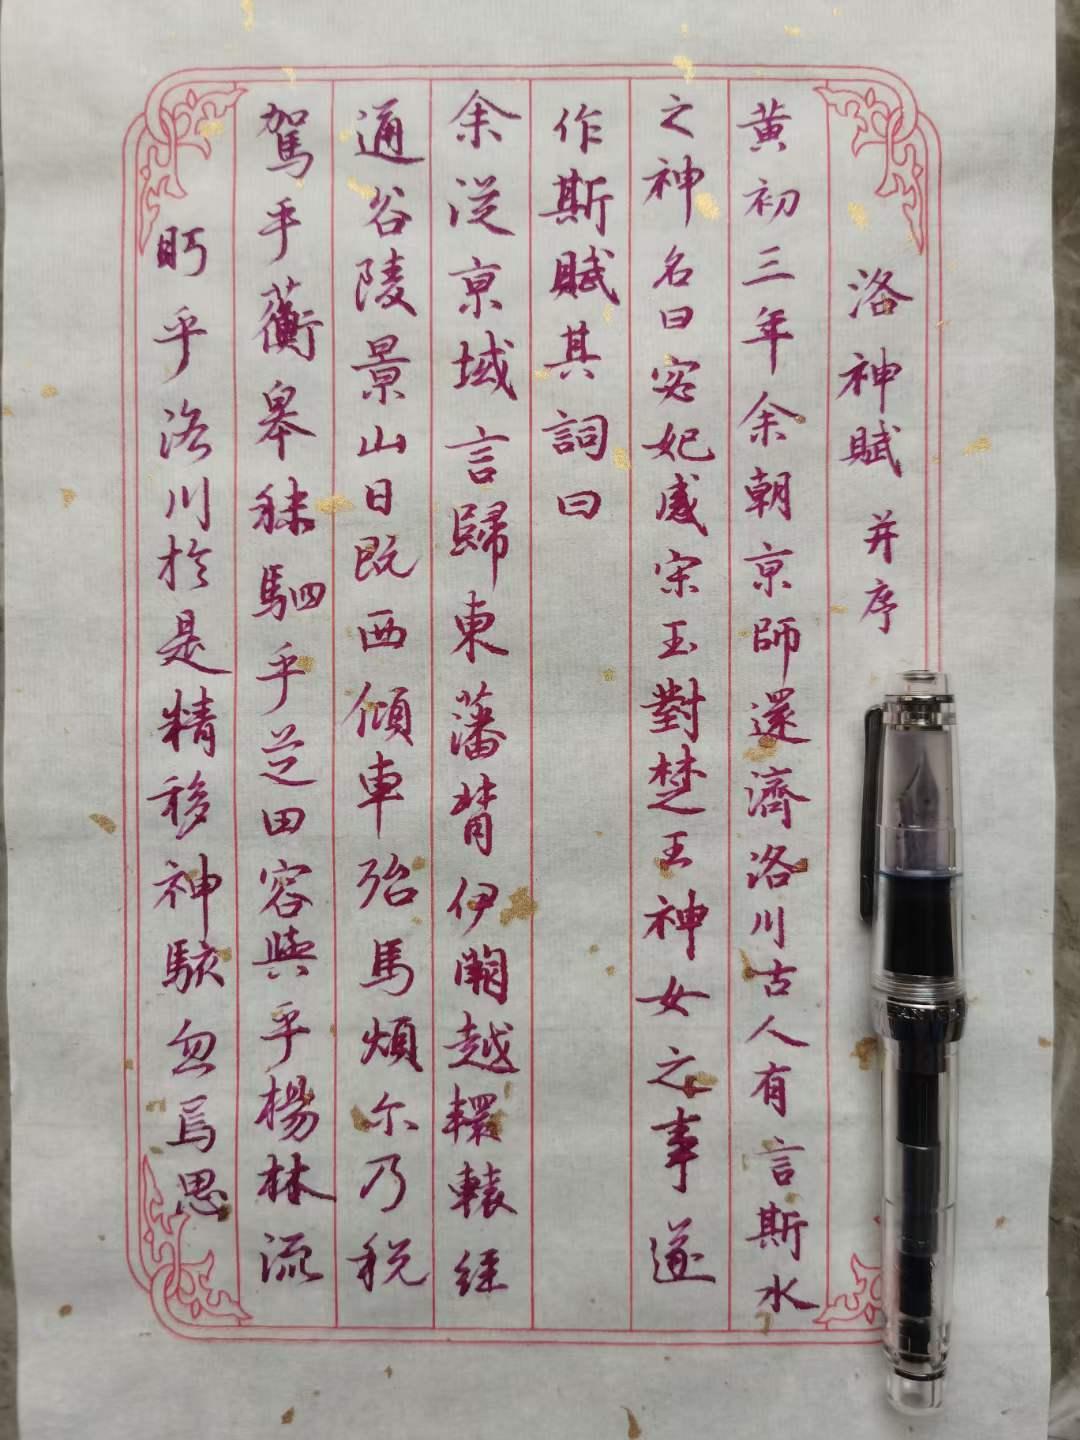 洛神賦并序
黄初三年余朝京師還濟洛川古人有言斯水
之神名曰宓妃感宋玉對楚王神女之事遂
作斯賦其詞曰
余從京域言歸東藩背伊闕越轘轅經
通谷陵景山日既西傾車殆馬煩尓乃税
駕乎蘅皋秣駟乎芝田容與乎楊林流
眄乎洛川於是精移神駭忽焉思